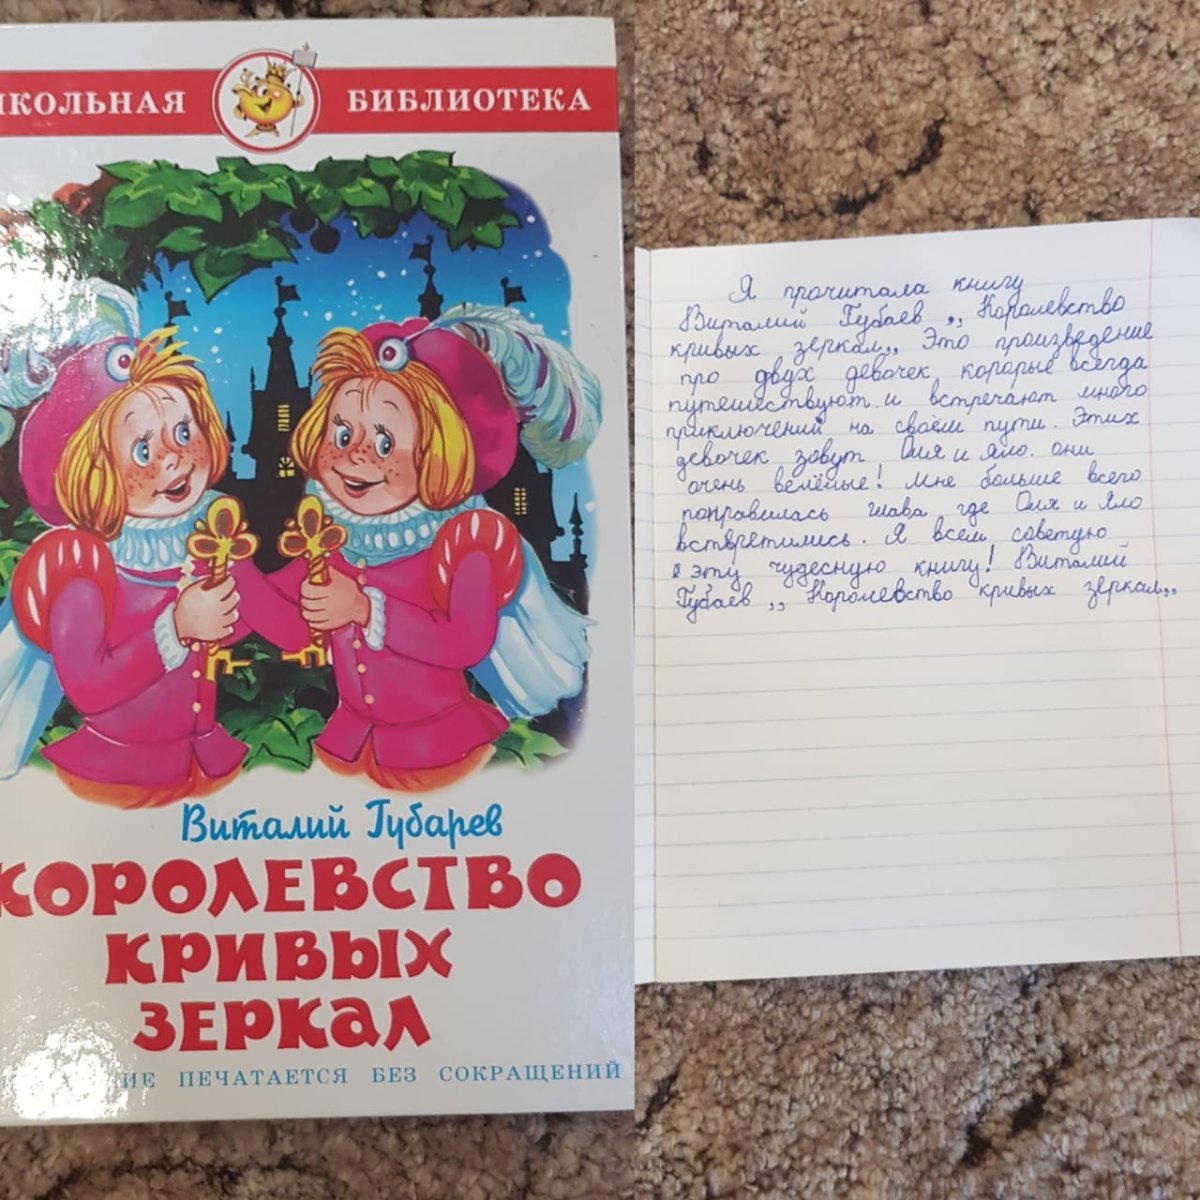 ШКОЛЬНАЯ БИБЛИОТЕКА
Виталий Губарев
КОРОЛЕВСТВО
КРИВЫХ
ЗЕРКАЛ
ПЕЧАТАЕТСЯ БЕЗ СОКРАЩЕНИЙ
Я прочитала книгу
Виталий Губаев ,, Королевство
кривых зеркал,, Это произведение
про двух девочек которые всегда
путешествуют и встречают много
приключений на своём пути. Этих
девочек зовут Оля и Яло. они
очень велёлые! Мне больше всего
понравилась глава где Оля и Яло
вствретились. Я всем советую
эту чудесную книгу! Виталий
Губаев ,, Королевство кривых зеркал,,